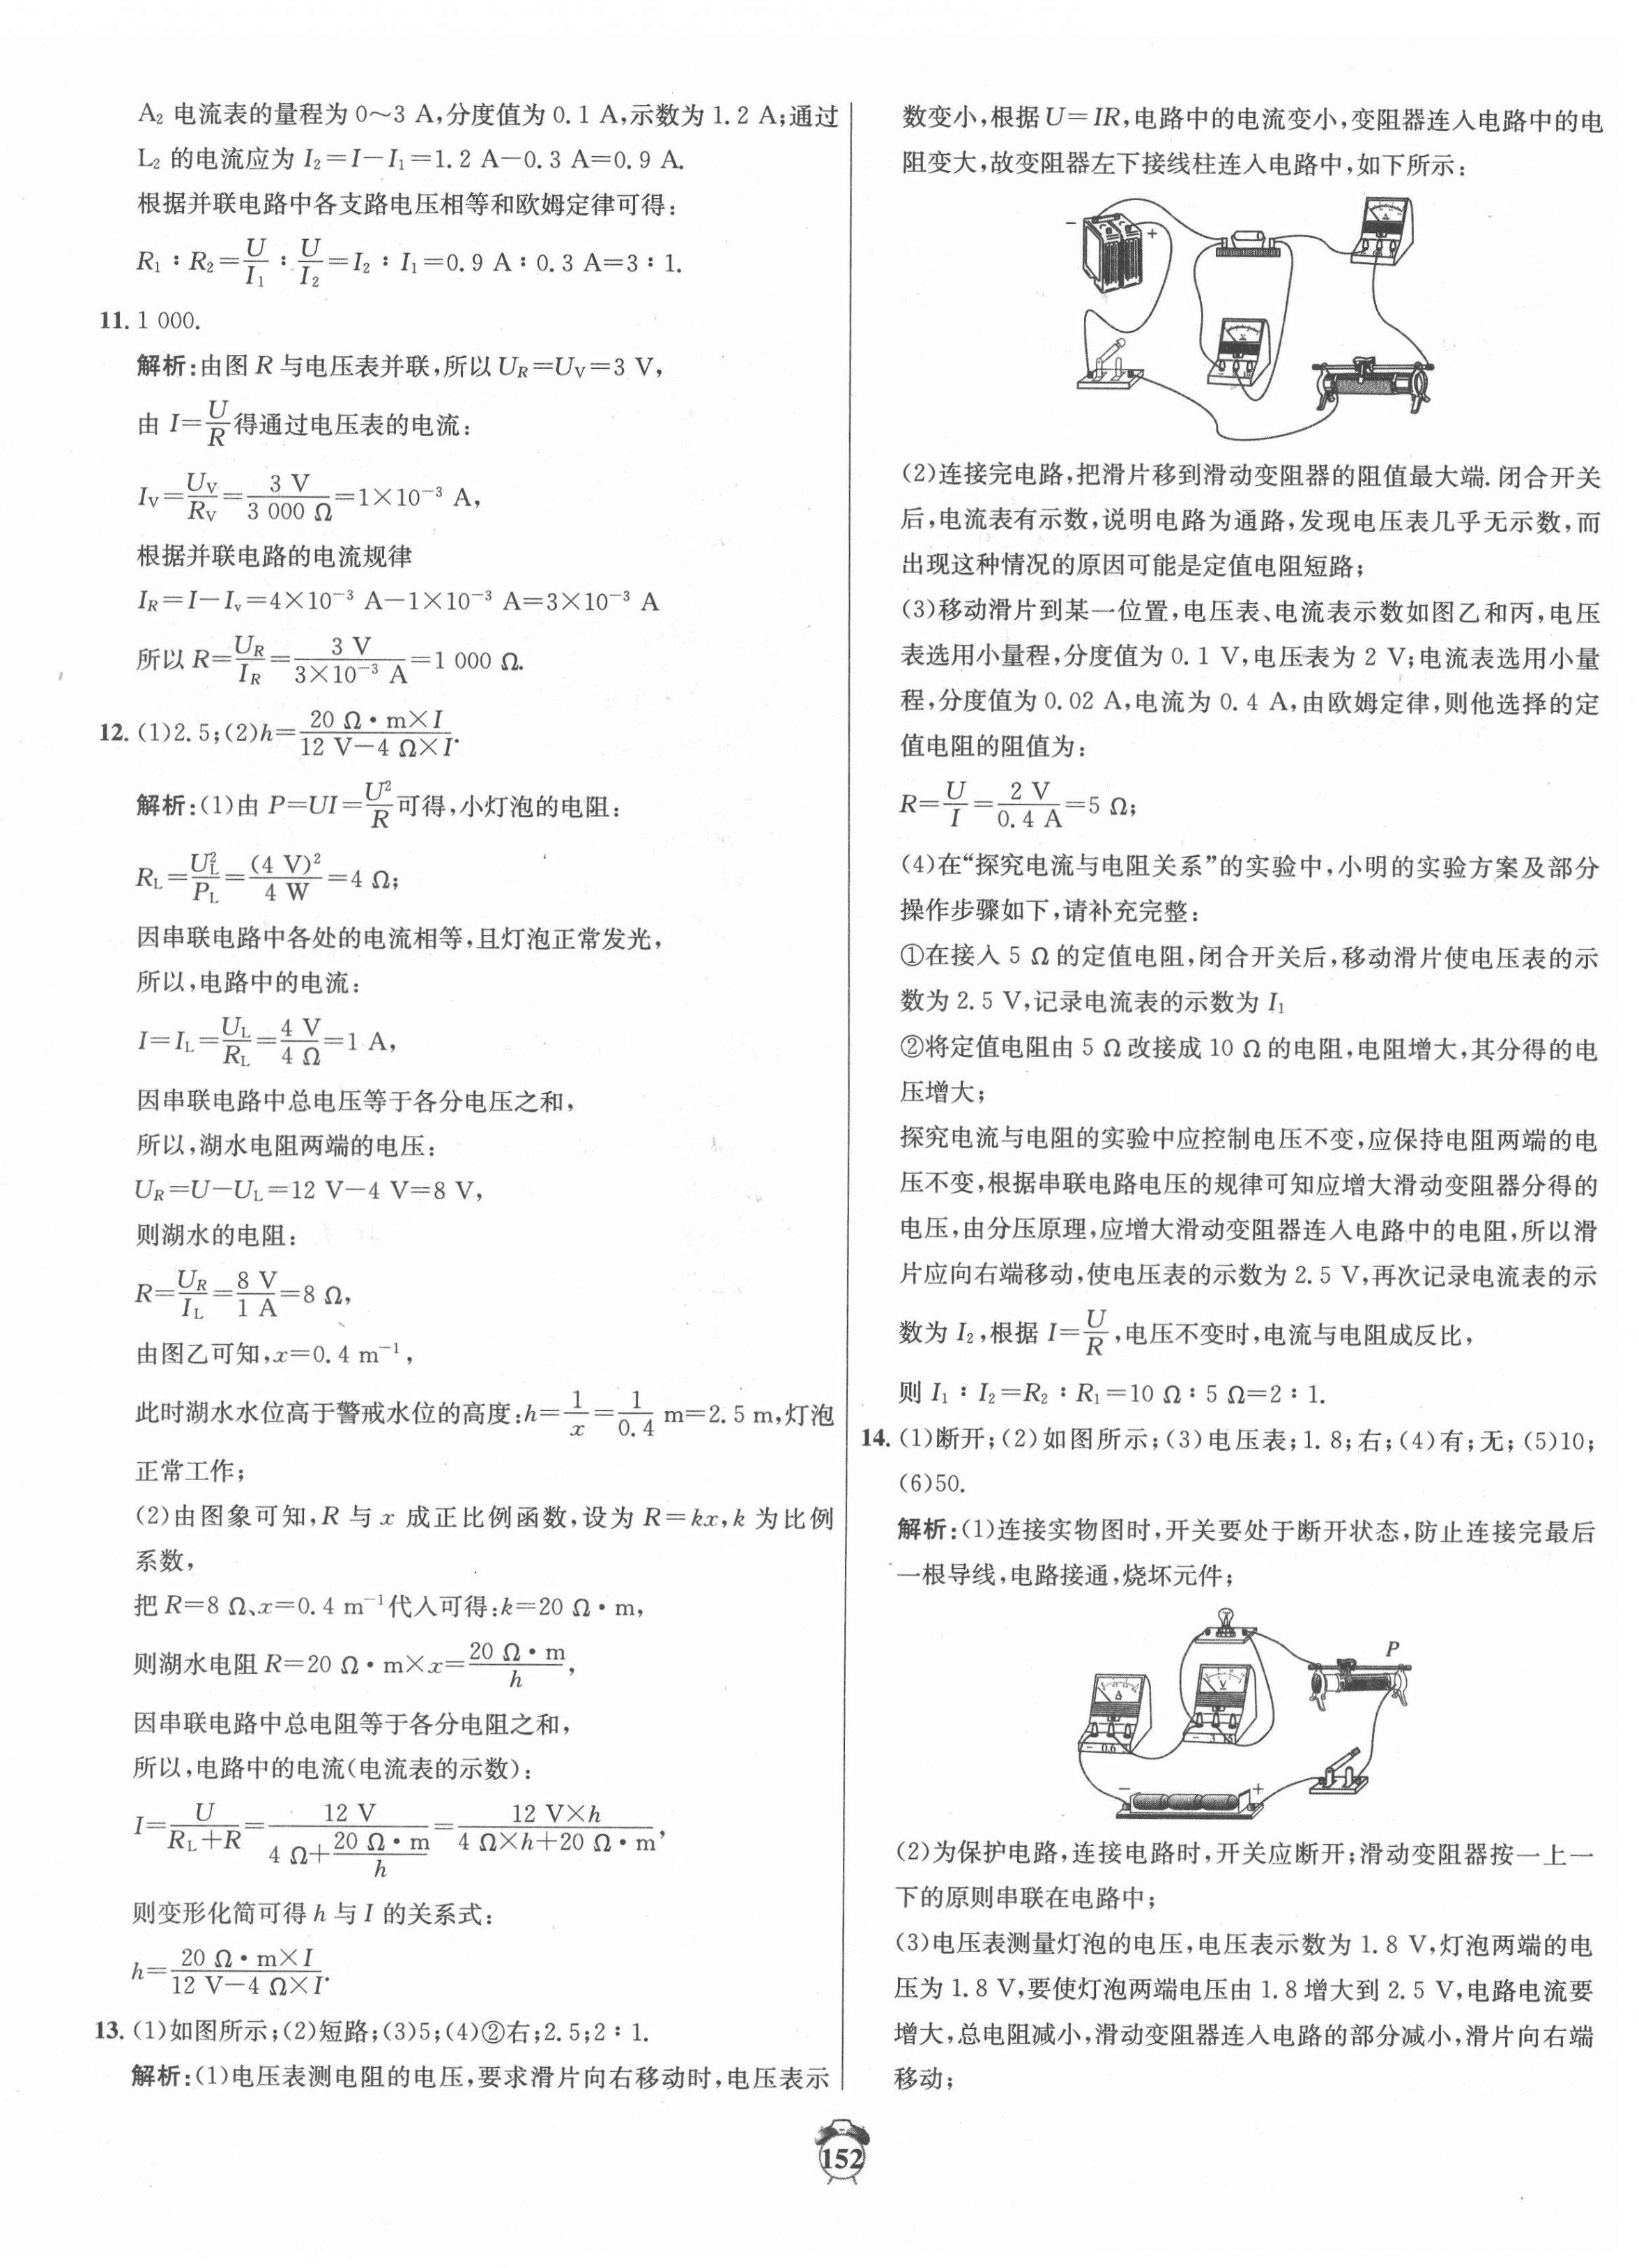 A₂ 电流表的量程为 0～3 A,分度值为 0.1 A,示数为 1.2 A;通过
L₂ 的电流应为 I₂=I－I₁=1.2 A－0.3 A=0.9 A.
根据并联电路中各支路电压相等和欧姆定律可得:
R₁∶R₂=U/I₁∶U/I₂=I₂∶I₁=0.9 A∶0.3 A=3∶1.
11. 1 000.
解析:由图 R 与电压表并联,所以 U_R=U_V=3 V,
由 I=U/R 得通过电压表的电流:
I_V=U_V/R_V=3 V/3 000 Ω=1×10⁻³ A,
根据并联电路的电流规律
I_R=I－I_v=4×10⁻³ A－1×10⁻³ A=3×10⁻³ A
所以 R=U_R/I_R=3 V/(3×10⁻³ A)=1 000 Ω.
12. (1)2.5;(2)h=(20 Ω·m×I)/(12 V－4 Ω×I).
解析:(1)由 P=UI=U²/R 可得,小灯泡的电阻:
R_L=U_L²/P_L=(4 V)²/4 W=4 Ω;
因串联电路中各处的电流相等,且灯泡正常发光,
所以,电路中的电流:
I=I_L=U_L/R_L=4 V/4 Ω=1 A,
因串联电路中总电压等于各分电压之和,
所以,湖水电阻两端的电压:
U_R=U－U_L=12 V－4 V=8 V,
则湖水的电阻:
R=U_R/I_L=8 V/1 A=8 Ω,
由图乙可知,x=0.4 m⁻¹,
此时湖水水位高于警戒水位的高度:h=1/x=1/0.4 m=2.5 m,灯泡
正常工作;
(2)由图象可知,R 与 x 成正比例函数,设为 R=kx,k 为比例
系数,
把 R=8 Ω、x=0.4 m⁻¹代入可得:k=20 Ω·m,
则湖水电阻 R=20 Ω·m×x=(20 Ω·m)/h,
因串联电路中总电阻等于各分电阻之和,
所以,电路中的电流(电流表的示数):
I=U/(R_L+R)=12 V/(4 Ω+(20 Ω·m)/h)=(12 V×h)/(4 Ω×h+20 Ω·m),
则变形化简可得 h 与 I 的关系式:
h=(20 Ω·m×I)/(12 V－4 Ω×I).
13. (1)如图所示;(2)短路;(3)5;(4)②右;2.5;2∶1.
解析:(1)电压表测电阻的电压,要求滑片向右移动时,电压表示
数变小,根据 U=IR,电路中的电流变小,变阻器连入电路中的电
阻变大,故变阻器左下接线柱连入电路中,如下所示:
－
+
A
V
(2)连接完电路,把滑片移到滑动变阻器的阻值最大端.闭合开关
后,电流表有示数,说明电路为通路,发现电压表几乎无示数,而
出现这种情况的原因可能是定值电阻短路;
(3)移动滑片到某一位置,电压表、电流表示数如图乙和丙,电压
表选用小量程,分度值为 0.1 V,电压表为 2 V;电流表选用小量
程,分度值为 0.02 A,电流为 0.4 A,由欧姆定律,则他选择的定
值电阻的阻值为:
R=U/I=2 V/0.4 A=5 Ω;
(4)在“探究电流与电阻关系”的实验中,小明的实验方案及部分
操作步骤如下,请补充完整:
①在接入 5 Ω 的定值电阻,闭合开关后,移动滑片使电压表的示
数为 2.5 V,记录电流表的示数为 I₁
②将定值电阻由 5 Ω 改接成 10 Ω 的电阻,电阻增大,其分得的电
压增大;
探究电流与电阻的实验中应控制电压不变,应保持电阻两端的电
压不变,根据串联电路电压的规律可知应增大滑动变阻器分得的
电压,由分压原理,应增大滑动变阻器连入电路中的电阻,所以滑
片应向右端移动,使电压表的示数为 2.5 V,再次记录电流表的示
数为 I₂,根据 I=U/R,电压不变时,电流与电阻成反比,
则 I₁∶I₂=R₂∶R₁=10 Ω∶5 Ω=2∶1.
14. (1)断开;(2)如图所示;(3)电压表;1.8;右;(4)有;无;(5)10;
(6)50.
解析:(1)连接实物图时,开关要处于断开状态,防止连接完最后
一根导线,电路接通,烧坏元件;
P
A
V
－ 0.6
－ 3 15
－
+
(2)为保护电路,连接电路时,开关应断开;滑动变阻器按一上一
下的原则串联在电路中;
(3)电压表测量灯泡的电压,电压表示数为 1.8 V,灯泡两端的电
压为 1.8 V,要使灯泡两端电压由 1.8 增大到 2.5 V,电路电流要
增大,总电阻减小,滑动变阻器连入电路的部分减小,滑片向右端
移动;
152